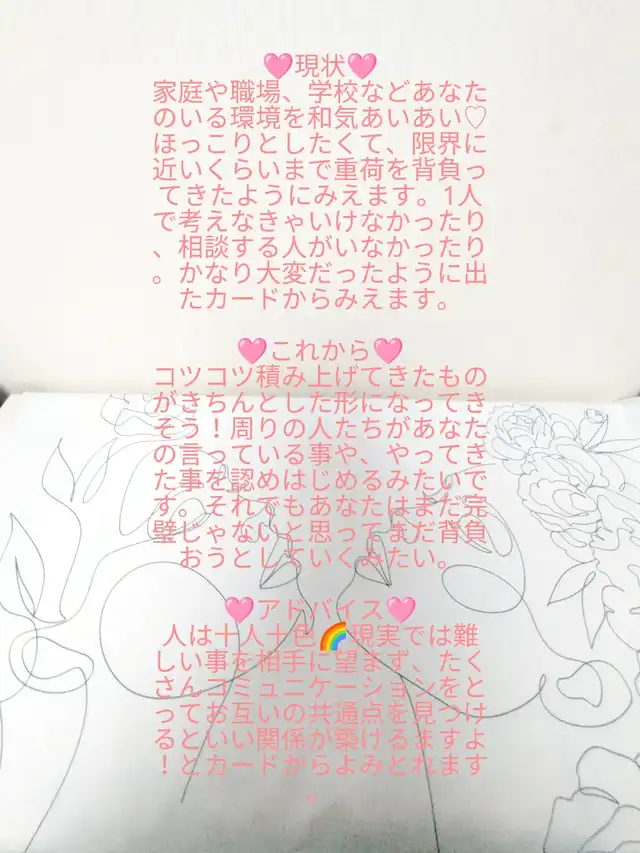 🩷現状🩷
家庭や職場、学校などあなた
のいる環境を和気あいあい♡
ほっこりとしたくて、限界に
近いくらいまで重荷を背負っ
てきたようにみえます。1人
で考えなきゃいけなかったり
、相談する人がいなかったり
。かなり大変だったように出
たカードからみえます。
🩷これから🩷
コツコツ積み上げてきたもの
がきちんとした形になってき
そう！周りの人たちがあなた
の言っている事や、やってき
た事を認めはじめるみたいで
す。それでもあなたはまだ完
璧じゃないと思ってまだ背負
おうとしていくみたい。
🩷アドバイス🩷
人は十人十色🌈現実では難
しい事を相手に望まず、たく
さんコミュニケーションをと
ってお互いの共通点を見つけ
るといい関係が築けるますよ
！とカードからよみとれます
。